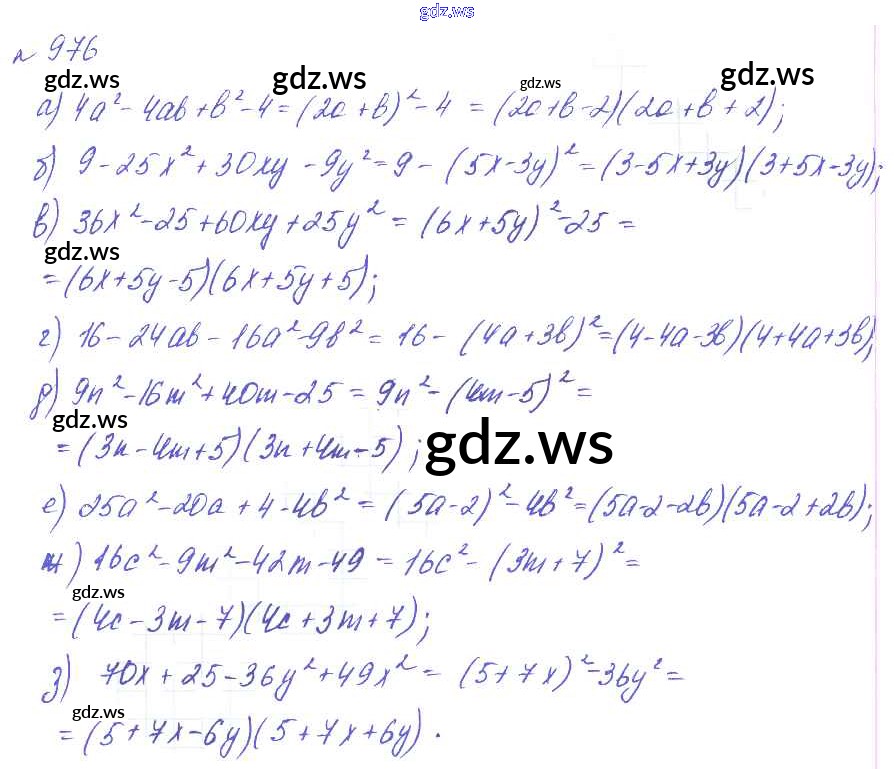 gdz.ws
№ 976
gdz.ws gdz.ws gdz.ws gdz.ws
а) 4a² - 4ab + b² - 4 = (2a + b)² - 4 = (2a + b - 2)(2a + b + 2);
б) 9 - 25x² + 30xy - 9y² = 9 - (5x - 3y)² = (3 - 5x + 3y)(3 + 5x - 3y);
в) 36x² - 25 + 60xy + 25y² = (6x + 5y)² - 25 =
gdz.ws
= (6x + 5y - 5)(6x + 5y + 5);
г) 16 - 24ab - 16a² - 9b² = 16 - (4a + 3b)² = (4 - 4a - 3b)(4 + 4a + 3b);
д) 9n² - 16m² + 40m - 25 = 9n² - (4m - 5)² =
gdz.ws
= (3n - 4m + 5)(3n + 4m - 5); gdz.ws
е) 25a² - 20a + 4 - 4b² = (5a - 2)² - 4b² = (5a - 2 - 2b)(5a - 2 + 2b);
ж) 16c² - 9m² - 42m - 49 = 16c² - (3m + 7)² =
gdz.ws
= (4c - 3m - 7)(4c + 3m + 7);
з) 70x + 25 - 36y² + 49x² = (5 + 7x)² - 36y² =
gdz.ws
= (5 + 7x - 6y)(5 + 7x + 6y).